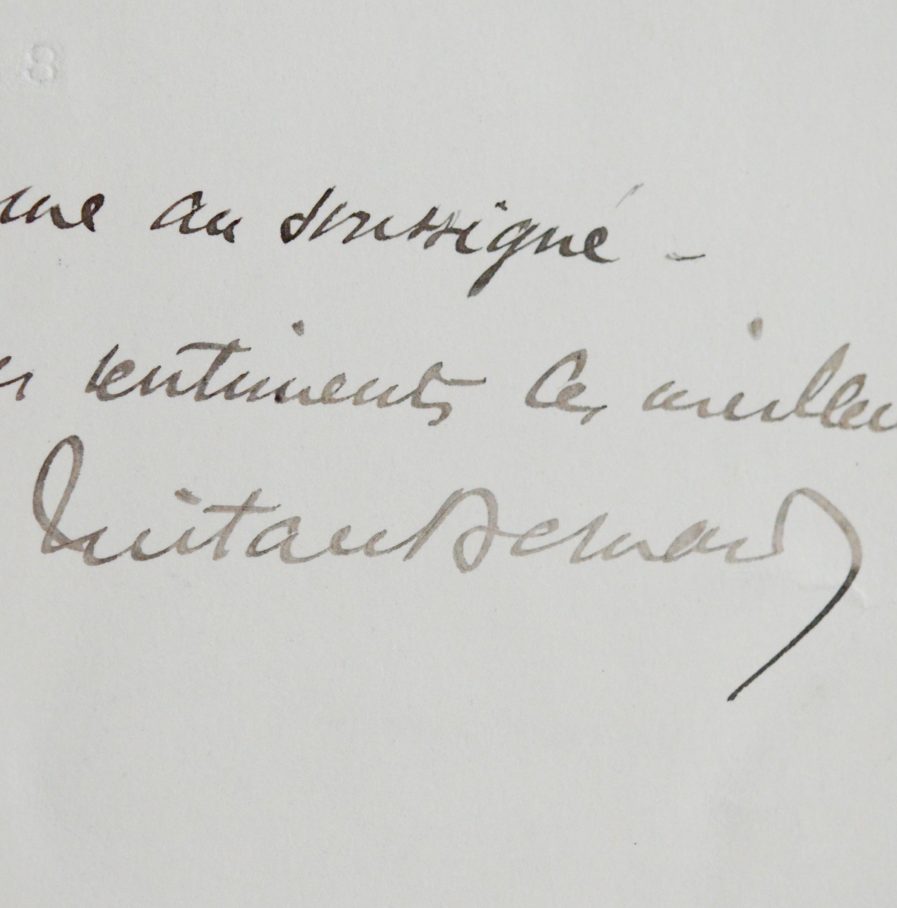 8
au soussigné -
sentiments les meilleu
Tristan Bernard